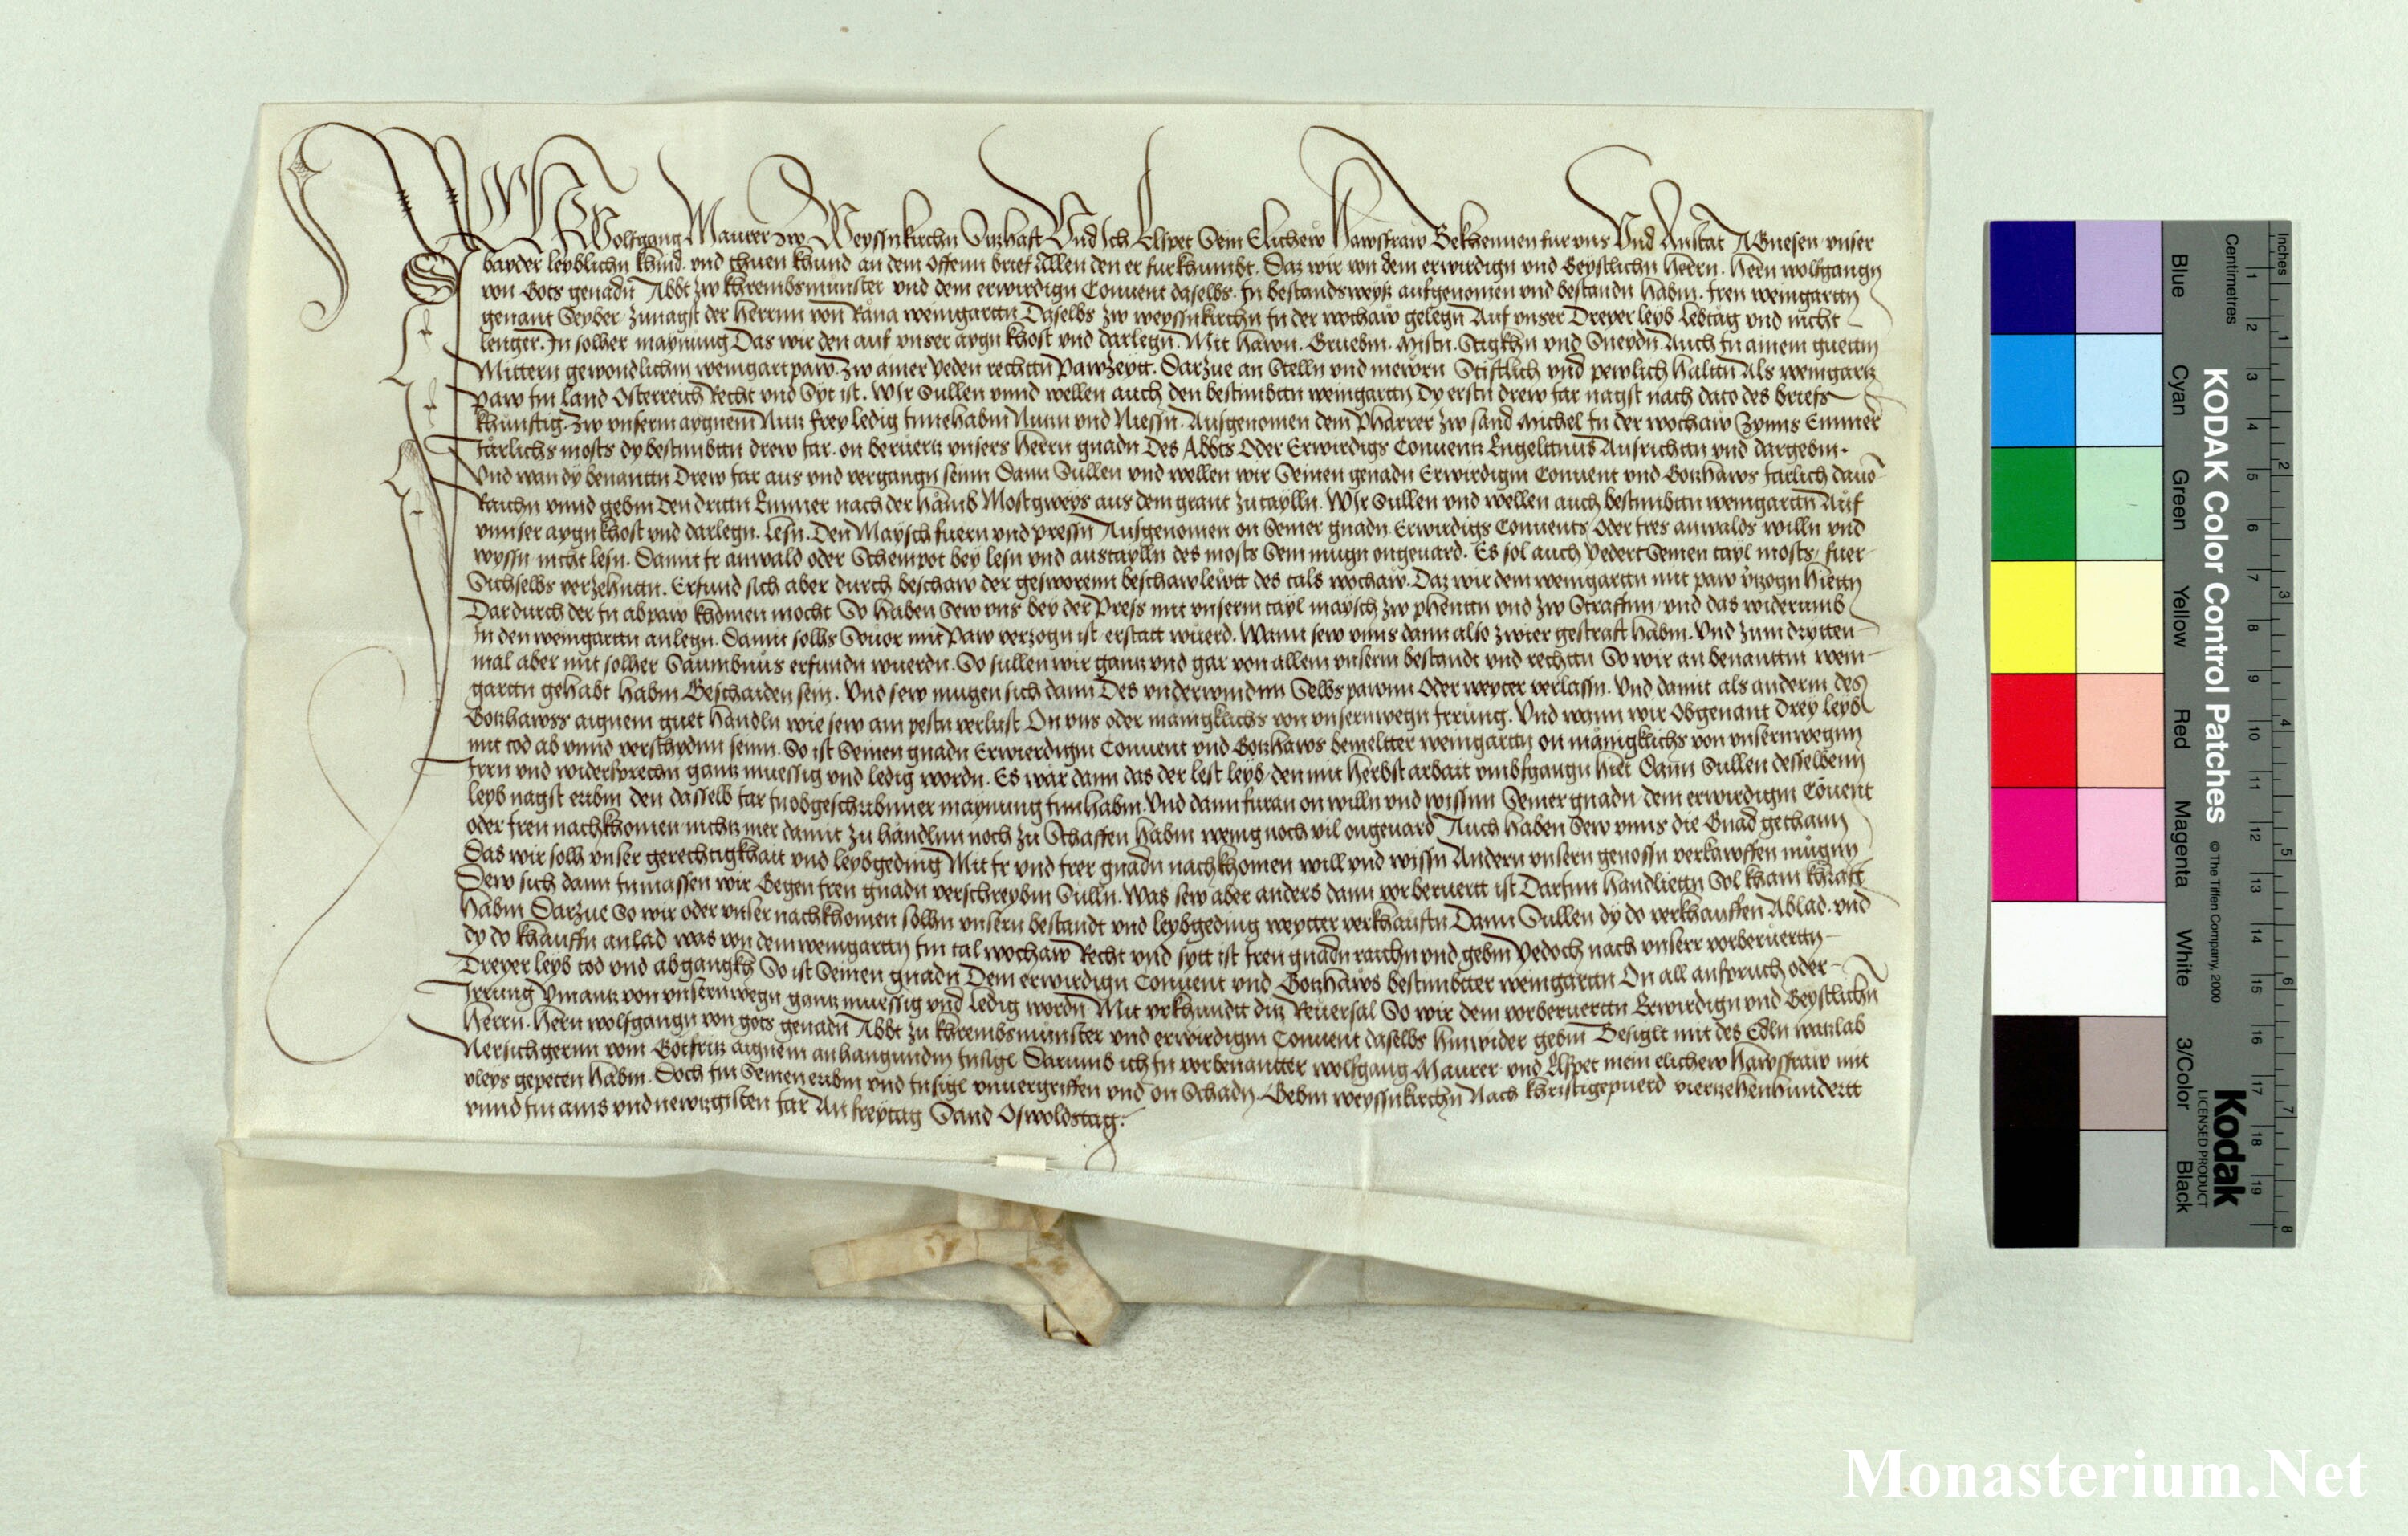 Ich Wolfgang Maurer zw Weyssnkirchn Seshaft Und Ich Elspet Sein Elichew Hawsfraw Bekhennen fur vns Vnd Anstat AGnesen vnser
bayder leyblichn khind. vnd thuen khund an dem offenn brief Allen den er furkhumbt. Daz wir von dem erwirdign vnd Geystlichn herrn. hern wolfgangn
von Gots genadn Abbt zw khrembsmunster vnd dem erwirdign Conuent daselbs. In bestandsweyß aufgenomen vnd bestandn habm. Iren weingartn
genant Seyber zunagst der herrnn von Rana weingartn Daselbs zw weyssnkirchn In der wochaw gelegn Auf vnser Dreyer leyb lebtag vnd nicht
lenger. In solher maynung Das wir den auf vnser aygn khost vnd darlegn. Mit hawn. Gruebm. Mistn. Stigkhn vnd Sneydn Auch In ainem guetm
Mittern gewondlichm weingartpaw. zw ainer yeden rechtn Pawzeytt. Darzue an Stelln vnd mewrn Stiftlich vnd pewlich haltn Als weingartz
paw Im land Osterreich Recht vnd Syt ist. Wir Sullen vnnd wellen auch den bestimbtn weingartn Dy erstn drew Iar nagst nach dato des briefs
khunftig. zw vnserm aygnem Nutz frey ledig Innehabm Nutzn vnd Niessn. Ausgenomen dem Pharrer zw sand Michel In der wochaw Zynns Emmer
Iarlichs mosts dy bestimbtn drew Iar. on beruertz vnsers herrn gnadn Des Abbts Oder Erwirdigs Conuentz Engeltnus Ausrichtn vnd dargebm.
Vnd wan dy benantn Drew Iar aus vnd vergangn seinn Dann Sullen vnd wellen wir Seinen genadn Erwirdigm Conuent vnd Gotzhaws Iarlich dauo
Raichn vnnd gebm Den dritn Emmer nach der hamb Mostgweys aus dem grant zu taylln. Wir Sullen vnd wellen auch bestimbtn weingartn Auf
vnnser aygn khost vnd darlegn. Lesn. Den Maysch fuern vnd pressn Ausgenomen on Seiner gnadn Erwirdigs Conuents Oder Ires anwalds willn vnd
wyssn nicht lesn. Damit Ir anwald oder Scheinpot bey lesn vnd austaylln des mosts Sein mugn ongeuard. Es sol auch yeder Seinen tayl mosts fuer
Sichselbs verzehntn. Erfund sich aber durch beschaw der gesworenn beschawlewtt des tals wochaw. Daz wir dem weingartn mit paw vrzogn hietn
Dardurch der In abpaw khomen mocht So haben Sew vns bey der Press mit vnserm tayl maysch zw phentn vnd zw Straffnn vnd das widerumb
In den weingartn anlegn. Damit solhs Souor mit Paw verzogn ist erstatt wuerd. Wann sew vnns dann also zwier gestraft habm. Vnd zum drytten
mal aber mit solher Saumbnus erfundn wuerdn. So sullen wir gantz vnd gar von allem vnserm bestandt vnd rechtn So wir an benantm wein
gartn gehabt habm Geschaiden sein. Vnd sew mugen sich dann Des vnderwindnn Selbs pawnn Oder weyter verlassn. Vnd damit als anderm des
Gotzhawss aignem guet handln wie sew am pestn verlust On vns oder manigklichs von vnsernwegn Irrung. Vnd wann wir Obgenant drey leyb
mit tod ab vnnd verschydnn seinn. So ist Seinen gnadn Erwierdigm Conuent vnd Gotzhaws bemeltter weingartn on manigklichs von vnsernwegnn
Irrn vnd widersprechn gantz muessig vnd ledig wordn. Es war dann das der lest leyb den mit herbst arbait vmbfgangn hiet Dann Sullen desselbenn
leyb nagst eribm den dasselb Iar In obgeschribnner maynung Innhabm. Vnd dann furan on willn vnd wissnn Seiner gnadn dem erwirdigm Couent
oder Iren nachkhomen nichtz mer damit zu handlnn noch zu Schaffen habm wenig noch vil ongeuard Auch haben Sew vnns die Gnad gethann
Das wir solh vnser gerechtigkhait vnd leybgeding Mit Ir vnd Irer gnadn nachkhomen will vnd wissn Andern vnsern genossn verkawffen mugnn
Dew sich dann Inmassen wir Gegen Iren gnadn verschreybm Sulln. Was sew aber anders dann vorberuertt ist Darinn handlietn Sol kham khrafft
habm Darzue So wir oder vnser nachkhomen solhn vnsern bestandt vnd leybgeding weytter verkhauftn Dann Sullen dy do verkhauffen Ablad. vnd
dy do khauffn anlad was von dem weingartn Im tal wochaw Recht vnd sytt ist Iren gnadn raichn vnd gebm Yedoch nach vnserr vorberuertn
Dreyer leyb tod vnd abgangkh So ist Seinen gnadn Dem erwirdign Conuent vnd Gotzhaws bestimbtter weingartn On all anspruch oder
Irrung Ymantz von vnsernwegn gantz muessig vnd Ledig wordn Mit vrkhundtt ditz Reuersal So wir dem vorberuertn Erwirdign vnd Geystlichn
Herrn. Hern wolfgangn von gots genadn Abbt zu khrembsmunster vnd erwirdigm Conuent daselbs hinwider gebm Besiglt mit des Edln
vom aignem anhangundm Insigl Darumb ich In vorbenantter wolfgang Maurer vnd Elspet mein elichew Hawsfraw mit
vleys gepeten habm. Doch Im Seinen eribm vnd Insigl vnuergriffen vnd on Schadn. Gebm weyssnkirchn Nach khristigepuerd vierzehenhundertt
vnnd Im ains vnd newntzigisten Iar An freytag Sand Oswoldstag.
KODAK Color Control Patches
© The Tiffen Company, 2000
Kodak
LICENSED PRODUCT
Inches
Centimetres
1 2 3 4 5 6 7 8
1 2 3 4 5 6 7 8 9 10 11 12 13 14 15 16 17 18 19
Blue
Cyan
Green
Yellow
Red
Magenta
White
3/Color
Black
Monasterium.Net